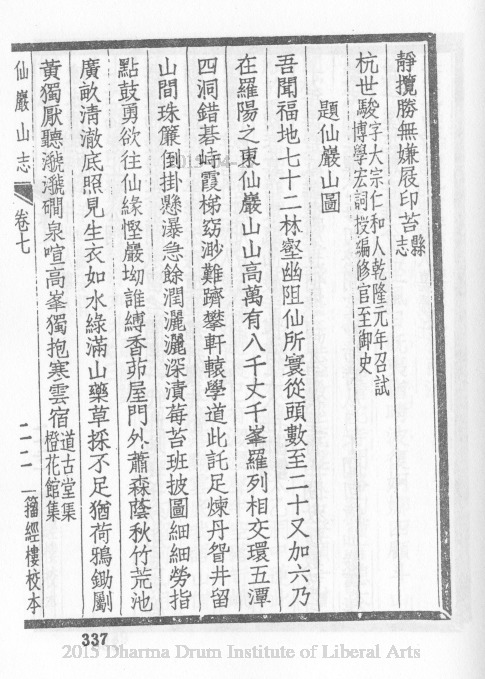 靜攬勝無嫌屐印苔縣志
杭世駿字大宗仁和人乾隆元年召試博學宏詞授編修官至御史
題仙巖山圖
吾聞福地七十二林壑幽阻仙所寰從頭數至二十又加六乃
在羅陽之東仙巖山山高萬有八千丈千峯羅列相交環五潭
四洞錯碁峙霞梯窈渺難躋攀軒轅學道此託足煉丹眢井留
山間珠簾倒掛懸瀑急餘潤灑灑深漬莓苔班披圖細細勞指
點鼓勇欲往仙緣慳巖坳誰縛香茆屋門外蕭森蔭秋竹荒池
廣畝清澈底照見生衣如水綠滿山藥草採不足猶荷鴉鋤劚
黃獨厭聽潺潺磵泉喧高峯獨抱寒雲宿道古堂集橙花館集
仙巖山志 卷七 二二 籀經樓校本
337
2015 Dharma Drum Institute of Liberal Arts